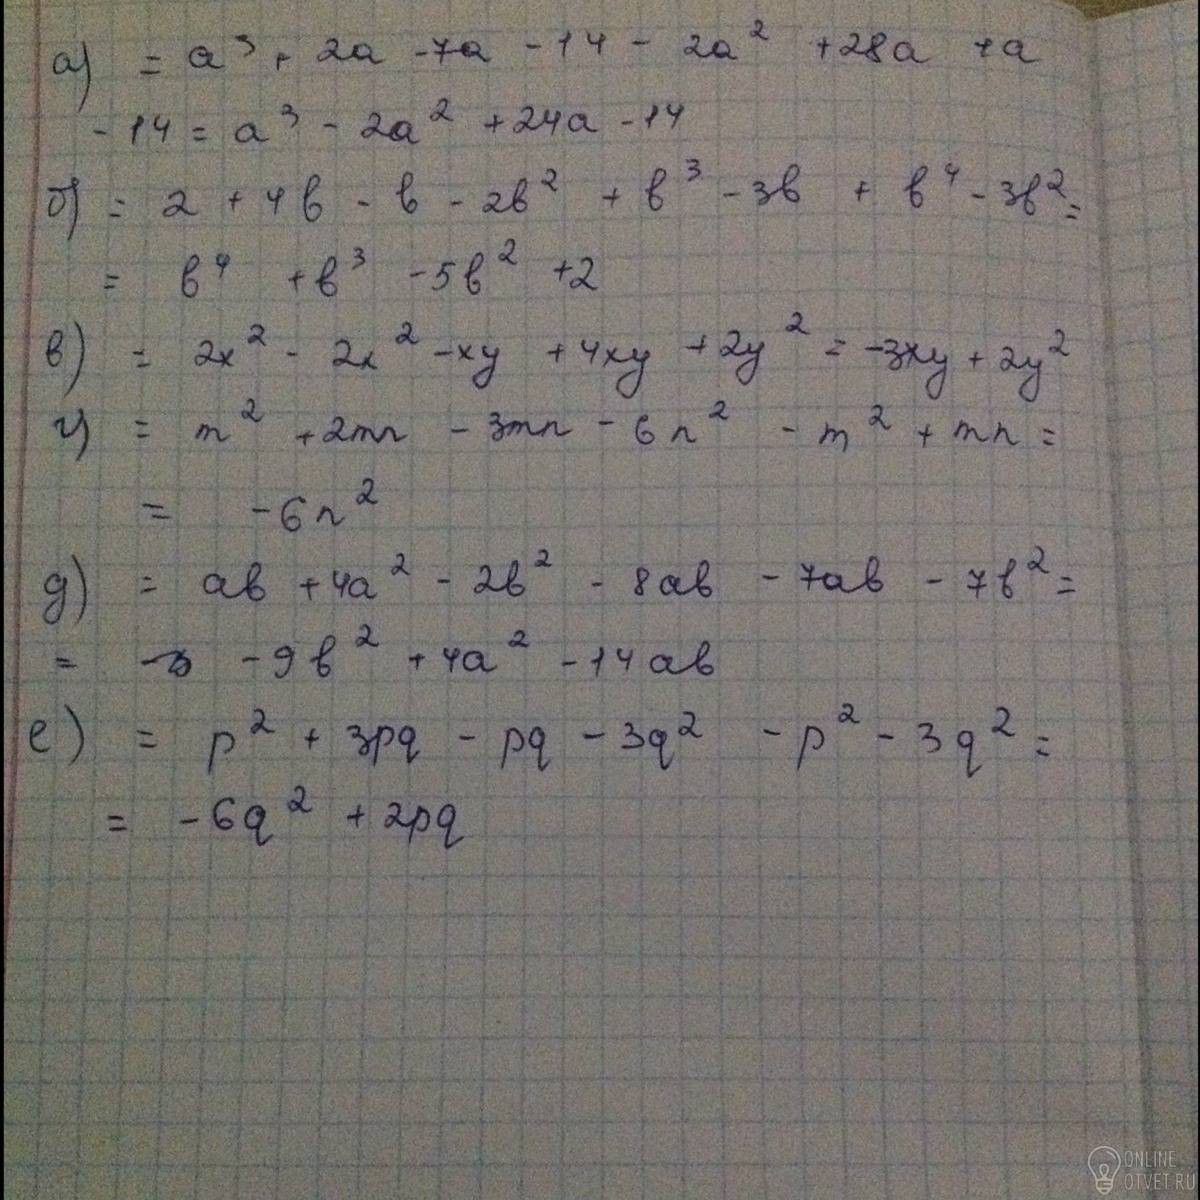 а) = a³ + 2a - 7a - 14 - 2a² + 28a + a
- 14 = a³ - 2a² + 24a - 14
б) = 2 + 4b - b - 2b² + b³ - 3b + b⁴ - 3b² =
= b⁴ + b³ - 5b² + 2
в) = 2x² - 2x² - xy + 4xy + 2y² = -3xy + 2y²
г) = m² + 2mn - 3mn - 6n² - m² + mn =
= - 6n²
д) = ab + 4a² - 2b² - 8ab - 7ab - 7b² =
= - 9b² + 4a² - 14ab
е) = p² + 3pq - pq - 3q² - p² - 3q² =
= - 6q² + 2pq
ONLINE
OTVET.RU